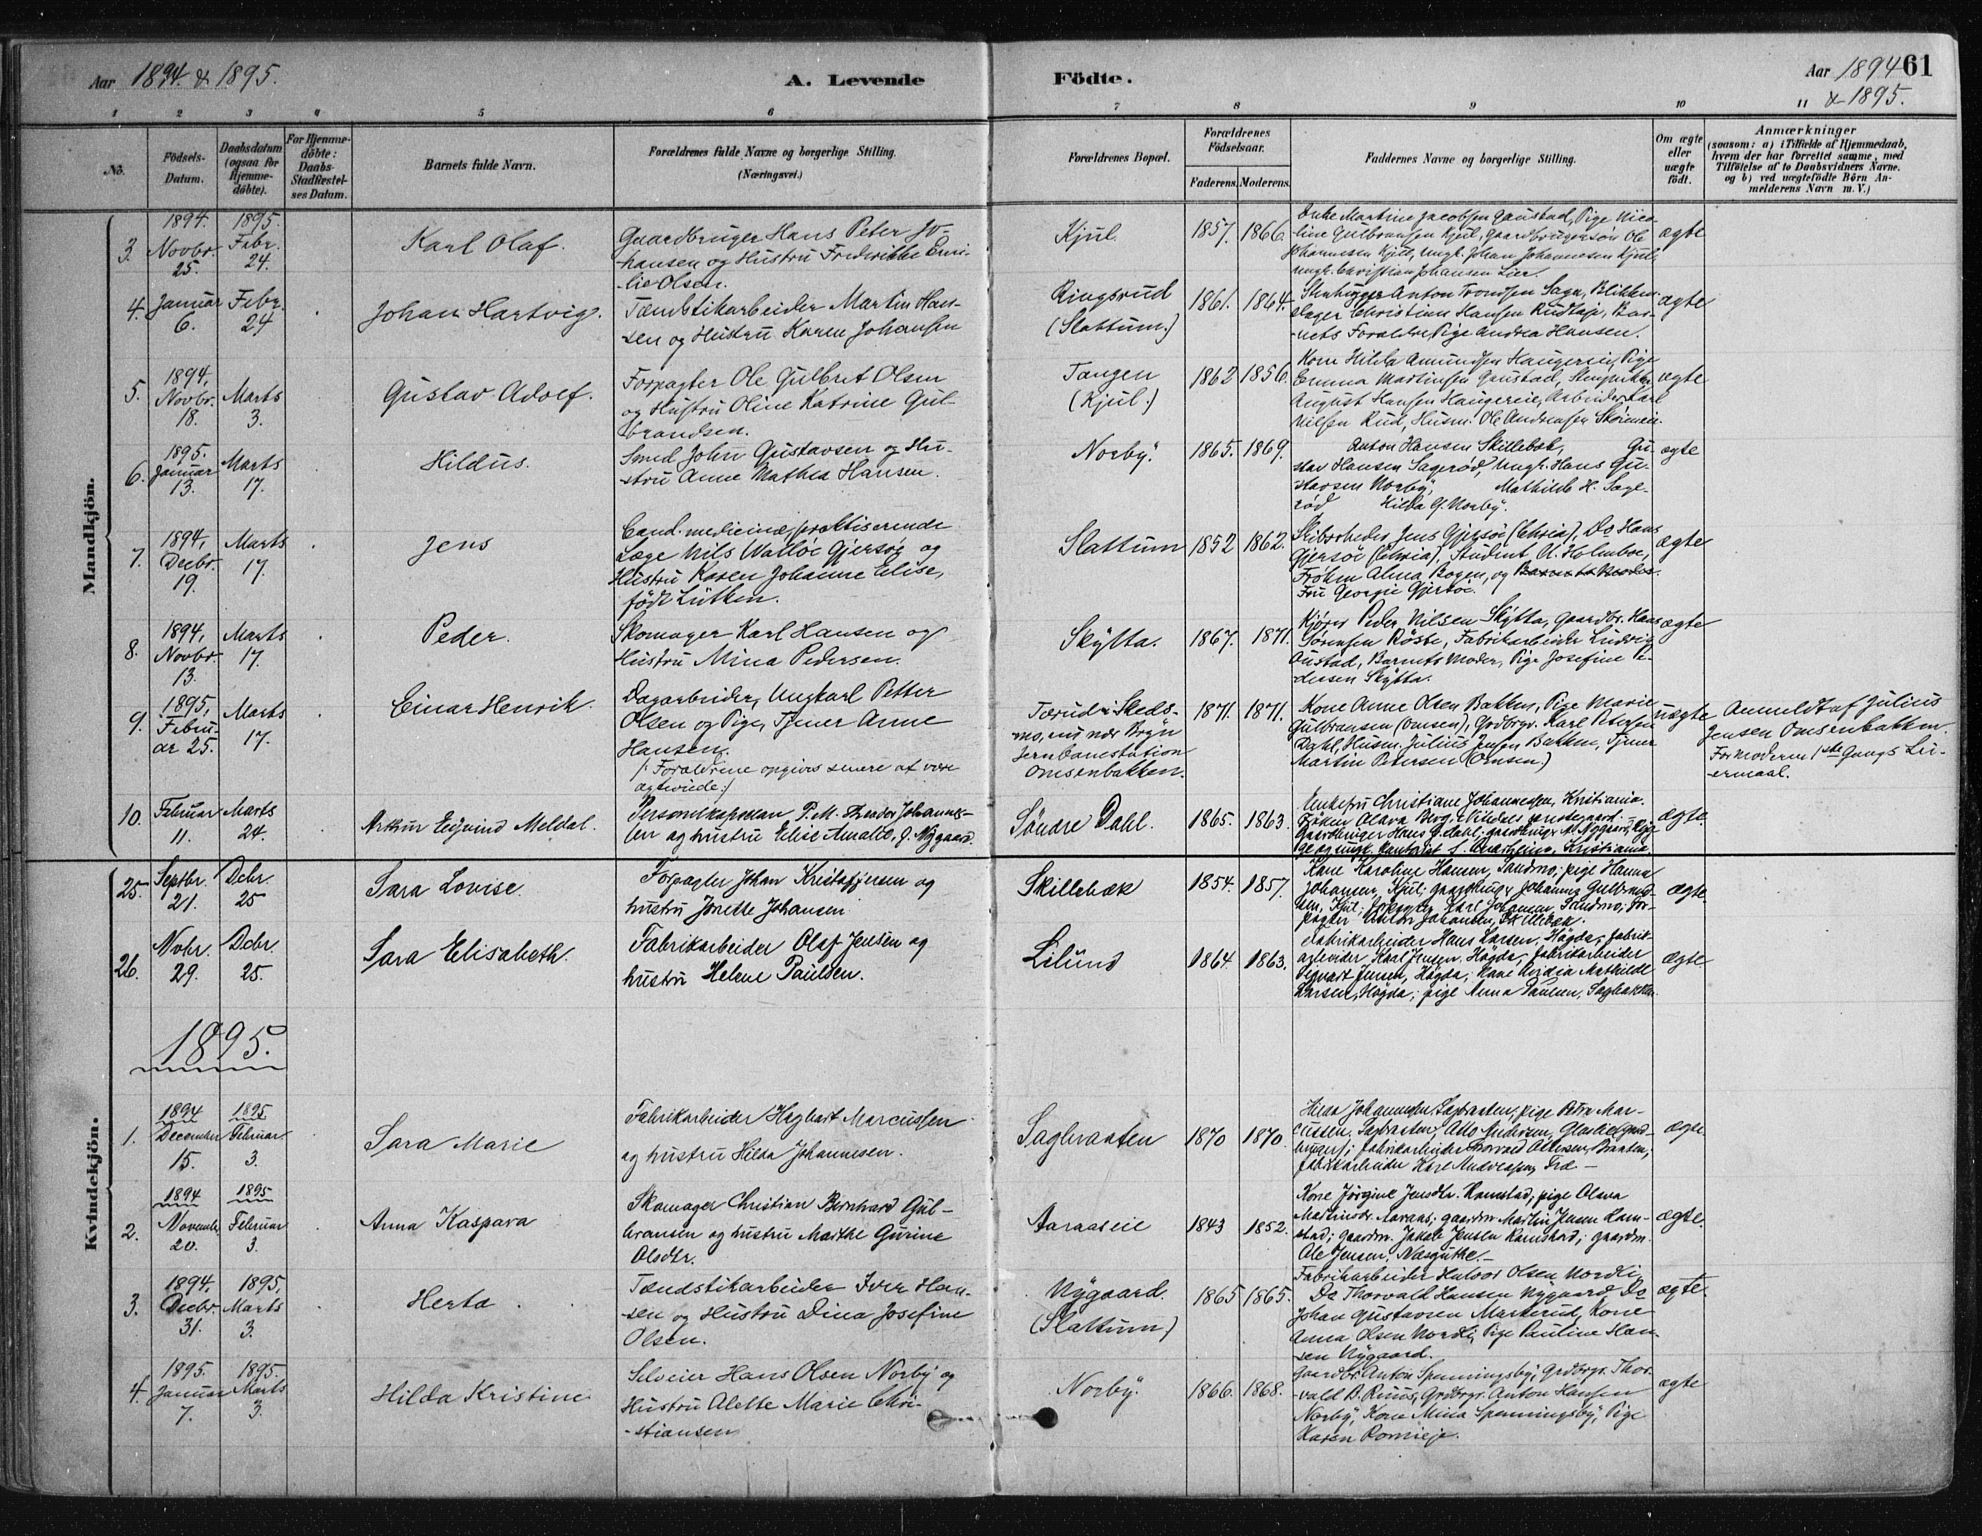 Aar 1894 & 1895.
A. Levende
Födte.
Aar 1894 61
& 1895.
1 2 3 4 5 6 7 8 9 10 11
No.
Födsels-
Datum.
Daabsdatum
(ogsaa for
Hjemme-
döbte).
For Hjemme-
döbte:
Daabs-
Stadfæstel-
ses Datum.
Barnets fulde Navn.
Forældrenes fulde Navne og borgerlige Stilling.
(Næringsvei.)
Forældrenes Bopæl.
Forældrenes
Födselsaar.
Faderens. Moderens.
Faddernes Navne og borgerlige Stilling.
Om ægte
eller
uægte
födt.
Anmærkninger
(saasom: a) i Tilfælde af Hjemmedaab,
hvem der har forrettet samme, med
Tilföielse af to Daabsvidners Navne,
og b) ved uægtefödte Börn An-
melderens Navn m. V.)
Mandkjön.
3.
1894.
Novbr.
25.
1895.
Febr.
24.
Karl Olaf.
Gaardbruger Hans Peter Jo-
hansen og Hustru Frederikke Emi-
lie Olsen.
Kjul.
1857. 1866.
Enke Martine Jacobsen Gaustad, Pige Nico-
line Gulbransen Kjul, Gaardbrugersøn Ole
Johannesen Kjul, Ungk. Johan Johannesen Kjul,
Ungk. Christian Johansen Lier.
ægte
4.
Januar
6.
Febr.
24
Johan Hartvig.
Tændstikarbeider Martin Han-
sen og Hustru Karen Johansen
Ringsrud
(Slattum.)
1861. 1864.
Anton Trondsen Sagn, Blikken-
slager Christian Hansen Rudtajе, Bar-
nets Forældre, Pige Andrea Hansen.
ægte
5.
1894,
Novbr.
18.
Marts
3.
Gustav Adolf.
Forpagter Ole Gulbret Olsen
og Hustru Oline Katrine Gul-
brandsen.
Tangen
(Kjul.)
1862 1856.
Kone Hilda Amundsen Haugereie, Pige
Emma Martinsen Gaustad,
August Hansen Haugereie, Arbeider Karl
Nilsen Rud, Husm. Ole Andreasen
ægte
6.
1895.
Januar
13.
Marts
17.
Hildus.
Smed John Gustavsen og Hu-
stru Anne Mathea Hansen.
Norby.
1865. 1869.
Anton Hansen Skillebæk, Gu-
stav Hansen Sagerød, Ungk. Hans Gu-
stavsen Norby, Mathilde H. Sage-
rød Hilda G. Norby.
ægte
7.
1894,
Decbr.
19.
Marts
17.
Jens
Cand. medicinæ, praktiserende
Læge Nils Watløe Gjersøe og
Hustru Karen Johanne Elise,
født Lütken.
Slattum
1852 1862.
Skibsrheder Jens Gjersøe (Chria), Do Hans
Gjersøe (Chria), Student A. Holmboe,
Frøkn Alma Bogen, og Barnets Moder.
Fru Georgie Gjersøe.
ægte
8.
1894,
Novbr.
13.
Marts
17.
Peder.
Skomager Karl Hansen og
Hustru Mina Pedersen.
Skytta.
1867. 1871.
Kjører Peder Nilsen Skytta, Gaardbr. Hans
Sørensen Røste, Fabrikarbeider Ludvig
Austad, Barnets Moder, Pige Josefine Pe-
dersen Skytta.
ægte
9.
1895,
Febru-
ar 25.
Marts
17.
Einar Henrik.
Dagarbeider, Ungkarl Petter
Olsen og Pige, Tjener Anne
Hansen.
(: Forældrene opgives senere at være
ægteviede :)
Tærud i Skeds-
mo, nu nær Bryn
Jernbanestation
Omsenbakken.
1871. 1871.
Kone Anne Olsen Bakken, Pige Marie
Gulbransen (Omsen), Grdbrgr. Karl Petersen
Dahl, Husm. Julius Jensen Bakken, Tjener
Martin Petersen (Omsen.)
uægte
Anmeldt af Julius
Jensen Omsenbakken.
For moderen 1ste Gangs Lei-
ermaal.
10.
Februar
11.
Marts
24.
Arthur Eivind Meldal.
Personelkapellan P. M. Theodor Johannes-
sen og hustru Elise Amalie, f. Nygaard.
Søndre Dahl.
1865. 1863.
Enkefru Christiane Johannessen, Kristiania.
Frøken Olava Berg,
Gaardbruger Hans J. Dahl; gaardbruger M. Nygaard,
Kristiania.
ægte.
25.
Septbr.
21.
Dcbr.
25
Sara Lovise.
Forpagter Johan Kristoffersen og
hustru Jonette Johansen.
Skillebæk
1854. 1857.
Kone Karoline Hansen, Sandmo; pige Hanna
Johansen, Kjul; gaardbruger Johannes Gulbrand-
sen, Kjul; Forpagter Karl Johansen, Sandmo; For-
pagter Anton Johansen, Skillebæk.
ægte
26.
Novbr.
29.
Dcbr.
25.
Sara Elisabeth.
Fabrikarbeider Olaf Jensen og
hustru Helene Paulsen.
Lilund
1864. 1863.
Fabrikarbeider Hans Larsen, Høgda, fabrik-
arbeider Karl Jensen, Høgda, fabrikarbeider
Sigvart Jensen, Høgda; kone Mathilde
Larsen, Høgda; pige Anna Paulsen, Sagbakken.
ægte
1895.
Kvindekjön.
1.
1894
December
15.
1895
Februar.
3.
Sara Marie
Fabrikarbeider Hagbart Marcussen
og hustru Hilda Johannesen.
Sagbraaten
1870 1870.
Hilda Johannesen, Sagbraaten; pige Petra Mar-
cussen, Sagbraaten; Otto Andersen,
fabrikarbeider Thorvald Braaten;
fabrikarbeider Kare Andreasen,
ægte
2.
1894
Novemb.
20.
1895
Februar
3.
Anna Kaspara
Skomager Christian Bernhard Gul-
bransen og hustru Marthe Gurine
Olsdtr.
Aaraaseie
1843 1852.
Kone Jørgine Jensdtr. Ramstad; pige Olava
Martinsdr. Aaraas; gaardm. Martin Jensen Ram-
stad; gaardm. Jakob Jensen Ramstad; gaardm.
Ole Jensen, Næsgutke.
ægte.
3.
1894,
Decbr.
31.
1895,
Marts
3.
Herta
Tændstikarbeider Iver Han-
sen og Hustru Dina Josefine
Olsen.
Nygaard
(Slattum)
1865 1865.
Fabrikarbeider Halvor Olsen Nordli
Do Thorvald Hansen Nygaard Do
Johan Gustavsen Markerud, Kone
Anna Olsen Nordli, Pige Pauline Han-
sen Nygaard.
ægte.
4.
1895.
Januar
7.
1895.
Marts
3.
Hilda Kristine
Selveier Hans Olsen Norby og
Hustru Alette Marie Chri-
stiansen
Norby.
1866. 1868.
Gaardbr. Anton Spenningsby, Grdbrgr. Thor-
vald B. Ruus, Grdbrgr. Anton Hansen
Norby, Kone Mina Spenningsby, Pige
Karen
ægte